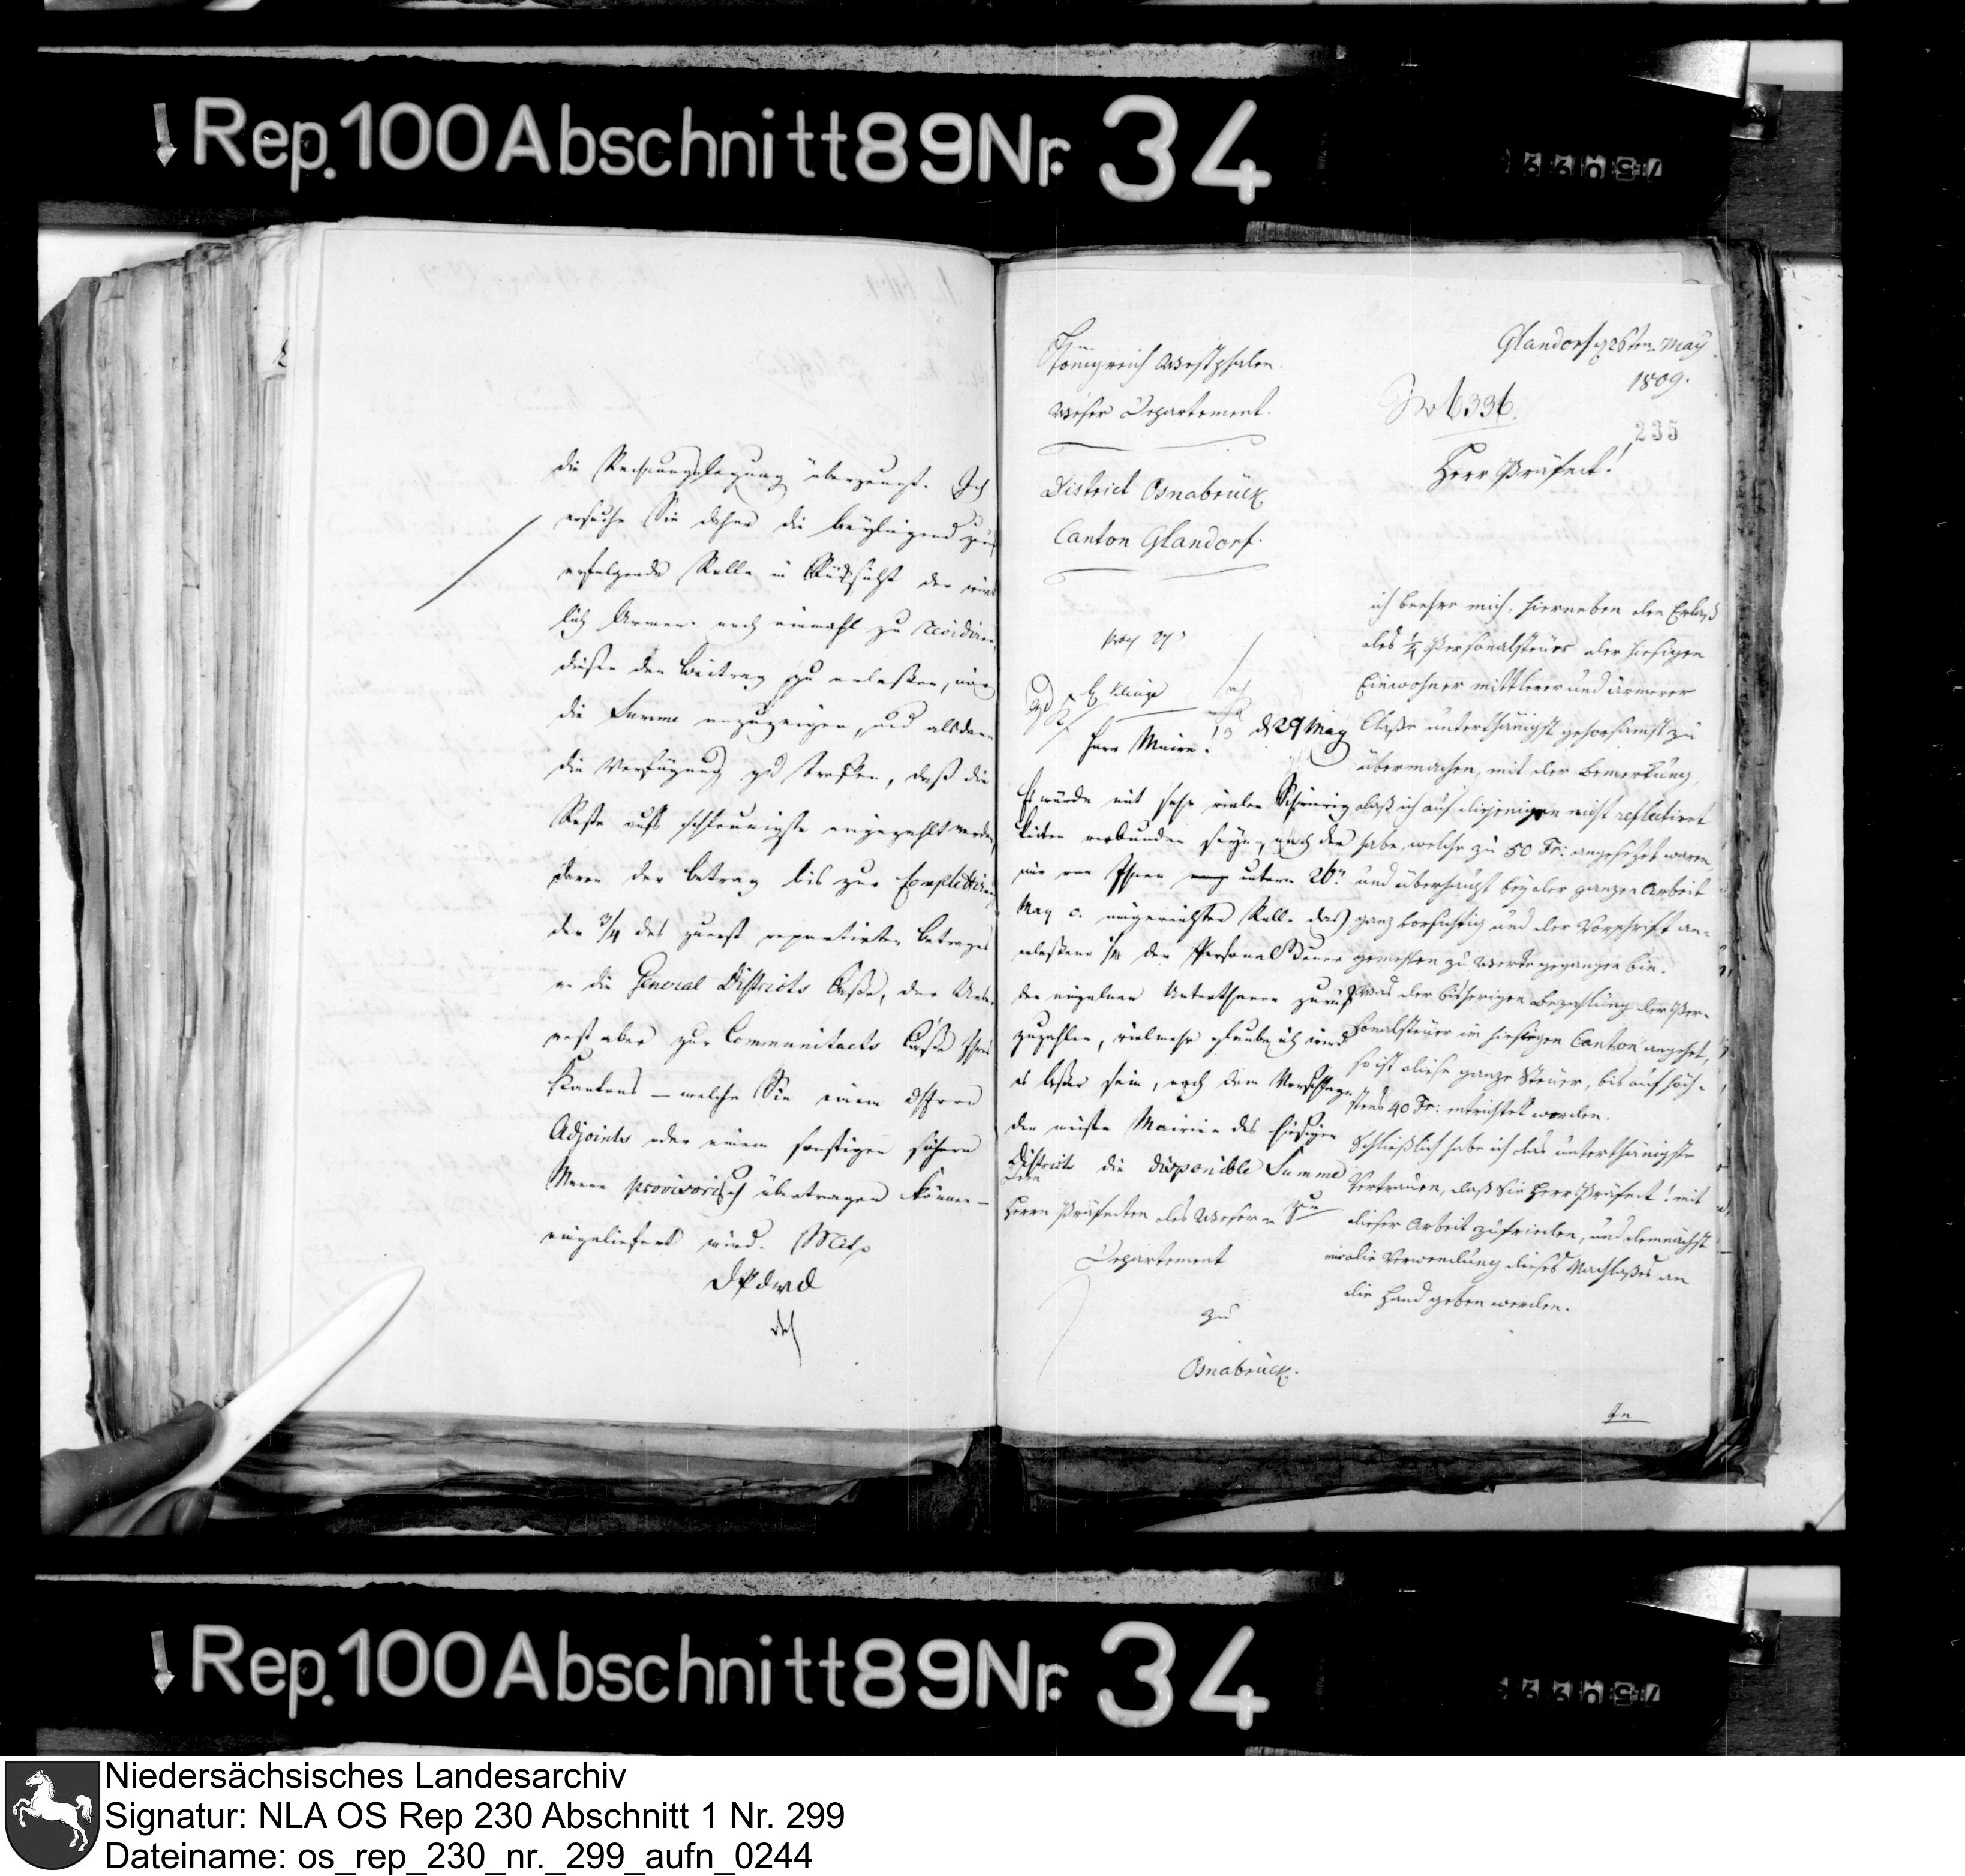 Rep. 100 Abschnitt 89 Nr. 34
die Rechnungslegung überzeugt. Ich
ersuche Sie daher die beyliegend
erfolgende Rolle in Rücksicht der
Armen noch einmahl zu revidiren,
diesen den Beitrag zu erlaßen,
die Summe anzuzeigen, und alsdann
die Verfügung zu treffen, daß die
Reste aufs schleunigste eingezahlt werden,
davon der Betrag bis zur Complettirung
der 3/4 des zuerst repartirten Betrages
die General Districts Caße, der
aber zur Communitaets Caße Ihres
Kantons – welche Sie einem Ihrer
Adjoints oder einem sonstigen sichern
Manne provisorisch übertragen können –
eingeliefert wird.
DPdWD
Königreich Westphalen.
Weser Departement.
District Osnabrück
Canton Glandorf.
Glandorf d 26ten May
1809.
No 6336.
235
Herr Präfect!
ich beehre mich, hierneben den Erlaß
des 1/4 Personalsteuer der hiesigen
Einwohner mittlerer und ärmerer
Claße unterthänigst gehorsamst zu
übermachen, mit der Bemerkung,
daß ich auf diejenigen nicht reflectiret
habe, welche zu 50 Fr: angesetzet waren,
und überhaupt bey der ganzen Arbeit
ganz vorsichtig und der Vorschrift an-
gemeßen zu Werke gegangen bin.
Was der bisherigen Bezahlung der Per-
sonalsteuer im hiesigen Canton angehet,
so ist diese ganze Steuer, bis auf höch-
stens 40 Fr: entrichtet worden.
Schließlich habe ich das unterthänigste
Vertrauen, daß Sie Herr Präfect! mit
dieser Arbeit zufrieden, und demnächst
mir die Verwendung dieses Nachlaßes an
die Hand geben werden.
d 29 May
Herr Maire!
Es würde mit sehr vielen Schwierig
keiten verbunden seyn, nach der
mir von Ihnen unterm 26n
May c. eingereichten Rolle das
erlaßene 1/4 der Personal Steuer
den einzelnen Unterthanen zurück
zuzahlen, vielmehr glaube ich wird
es beßer sein, nach dem Vorschlage
der meisten Mairien des hiesigen
Districts die disponible Summe
zu
Dem
Herrn Präfecten des Weser
Departement
zu
Osnabrück.
Rep. 100 Abschnitt 89 Nr. 34
Niedersächsisches Landesarchiv
Signatur: NLA OS Rep 230 Abschnitt 1 Nr. 299
Dateiname: os_rep_230_nr._299_aufn_0244